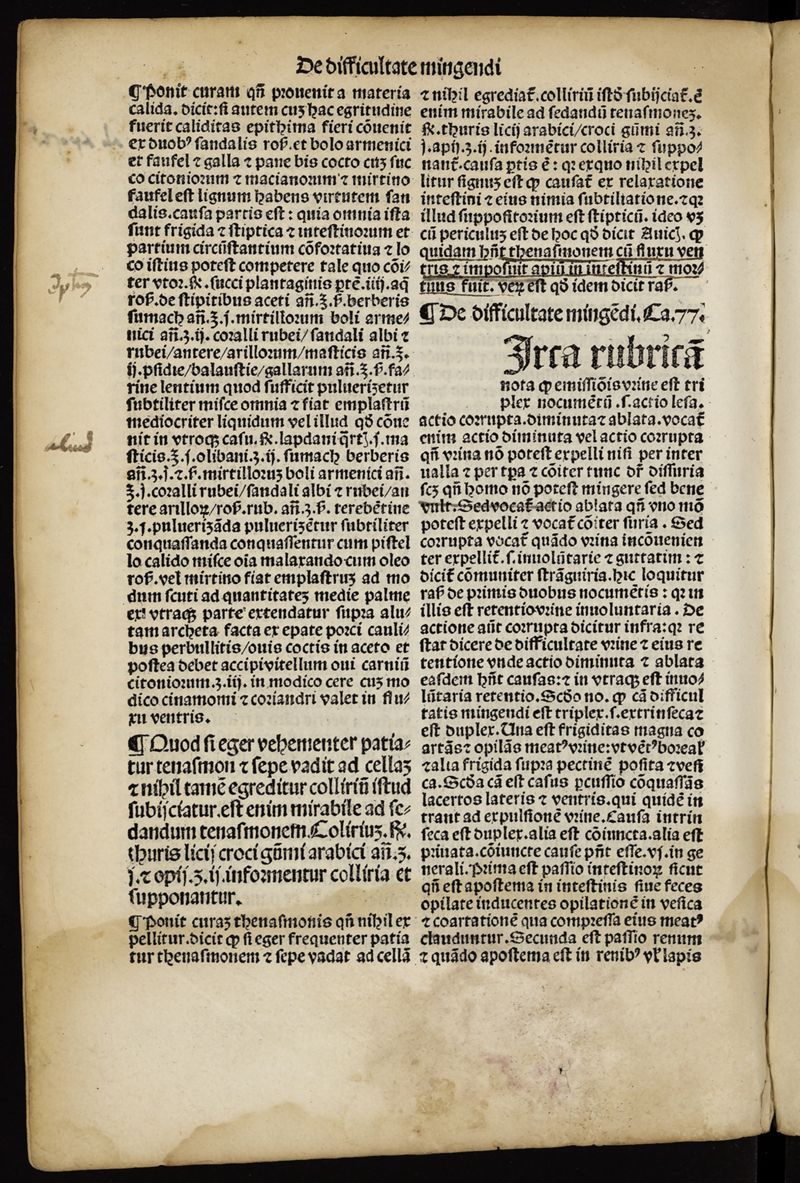 De difficultate mingendi
¶Ponit curam qñ prouenit a materia
calida. dicit:si autem cuʒ hac egritudine
fuerit caliditas epithima fieri cōuenit
ex duobꝰ sandalis ros̄.et bolo armenici
et faufel ⁊ galla ⁊ pane bis cocto cuʒ suc
co citoniorum ⁊ macianorum ⁊ mirtino
faufel est lignum habens virtutem san
dalis.causa partis est : quia omnia ista
sunt frigida ⁊ stiptica ⁊ intestinorum et
partium circūstantium cōfortatiua ⁊ lo
co istius potest competere tale quo cōi⸗
ter vtor.℞.succi plantaginis ꝑtē.iiij.aq̄
ros̄.de stipitibus aceti añ.ʒ.s̄.berberis
sumach añ.ʒ.j.mirtillorum boli arme⸗
nici añ.ʒ.ij.coralli rubei/sandali albi ⁊
rubei/antere/arillorum/masticis añ.ʒ.
ij.psidie/balaustie/gallarum añ.ʒ.s̄.fa⸗
rine lentium quod sufficit puluerizetur
subtiliter misce omnia ⁊ fiat emplastrū
mediocriter liquidum vel illud qđ cōue
nit in vtroqʒ casu.℞.lapdani q̄rt̄.j.ma
sticis.ʒ.j.olibani.ʒ.ij.sumach berberis
añ.ʒ.j.⁊.s̄.mirtilloruʒ boli armenici añ.
ʒ.j.coralli rubei/sandali albi ⁊ rubei/an
tere arilloꝝ/ros̄.rub. añ.ʒ.s̄. terebētine
ʒ.j.pulueriʒāda pulueriʒētur subtiliter
conquassanda conquassentur cum pistel
lo calido misce oīa malaxando cum oleo
ros̄.vel mirtino fiat emplastruʒ ad mo
dum scuti ad quantitateʒ medie palme
ex vtraqʒ parte extendatur supra alu⸗
tam archeta facta ex epate porci cauli⸗
bus perbullitis/ouis coctis in aceto et
postea debet accipi vitellum oui carniū
citoniorum.ʒ.iij.in modico cere cuʒ mo
dico cinamomi ⁊ coriandri valet in flu⸗
xu ventris.
¶Quod si eger vehementer patia⸗
tur tenasmon ⁊ sepe vadit ad cellaʒ
⁊ nihil tamē egreditur colliriū istud
subijciatur.est enim mirabile ad se⸗
dandum tenasmonem.Coliriuʒ.℞.
thuris licij croci gūmi arabici añ.ʒ.
j.⁊ opij.ʒ.ij.informentur colliria et
supponantur.
¶Ponit curaʒ thenasmonis qñ nihil ex
pellitur.dicit ꝙ si eger frequenter patia
tur thenasmonem ⁊ sepe vadat ad cellā
⁊ nihil egrediat̄.colliriū istđ subijciat̄.ē
enim mirabile ad sedandū tenasmoneʒ.
℞.thuris licij arabici/croci gūmi añ.ʒ.
j.apij.ʒ.ij.informētur colliria ⁊ suppo⸗
nant̄.causa ꝑtis ē : qꝛ exquo nihil expel
litur signuʒ est ꝙ causat̄ ex relaxatione
intestini ⁊ eius nimia subtiliatione.⁊qꝛ
illud suppositorium est stipticū. ideo vʒ
cū periculuʒ est de hoc qđ dicit Auic̄. ꝙ
quidam hñt thenasmonem cū fluxu ven
tris ⁊ imposuit apiū in intestinū ⁊ mor⸗
tuus fuit. veꝝ est qđ idem dicit ras̄.
¶De difficultate mingēdi. Ca.77.
Irca rubricā
nota ꝙ emissiōis vrine est tri
plex nocumētū .s.actio lesa.
actio corrupta.diminuta⁊ ablata.vocat̄
enim actio diminuta vel actio corrupta
qñ vrina nō potest expelli nisi per inter
ualla ⁊ per tꝑa ⁊ cōiter tunc dr̄ dissuria
scʒ qñ homo nō potest mingere sed bene
vult.Sed vocat̄ actio ablata qñ vno mō
potest expelli ⁊ vocat̄ cōiter suria . Sed
corrupta vocat̄ quādo vrina incōuenien
ter expellit̄.s.inuolūtarie ⁊ guttatim : ⁊
dicit̄ cōmuniter strāguiria.hic loquitur
ras̄ de primis duobus nocumētis : qꝛ in
illis est retentio vrine inuoluntaria . De
actione aūt corrupta dicitur infra:qꝛ re
stat dicere de difficultate vrine ⁊ eius re
tentione vnde actio diminuta ⁊ ablata
easdem hñt causas:⁊ in vtraqʒ est inuo⸗
lūtaria retentio.Scđo no. ꝙ cā difficul
tatis mingendi est triplex.s.extrinseca⁊
est duplex.Una est frigiditas magna co
artās⁊ opilās meatꝰ vrine:vt vētꝰ boreal̄
⁊alia frigida supra pectinē posita ⁊vesi
ca.Scđa cā est casus ꝑcussio cōquassās
lacertos lateris ⁊ ventris.qui quidē in
trant ad expulsionē vrine.Causa intrin
seca est duplex.alia est cōiuncta.alia est
priuata.cōiuncte cause pñt esse.vj.in ge
nerali.Prima est passio intestinoꝝ sicut
qñ est apostema in intestinis siue feces
opilate inducentes opilationē in vesica
⁊ coartationē qua compressa eius meatꝰ
clauduntur.Secunda est passio renum
⁊ quādo apostema est in renibꝰ vl̄ lapis